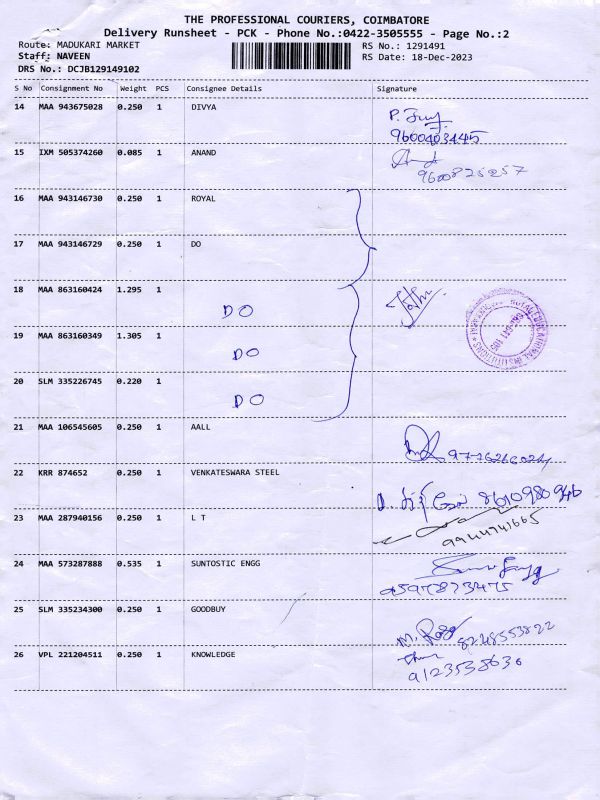 THE PROFESSIONAL COURIERS, COIMBATORE
Delivery Runsheet - PCK - Phone No.:0422-3505555 - Page No.:2
Route: MADUKARI MARKET RS No.: 1291491
Staff: NAVEEN RS Date: 18-Dec-2023
DRS No.: DCJB129149102
S No Consignment No Weight PCS Consignee Details Signature
14 MAA 943675028 0.250 1 DIVYA
9600403445
15 IXM 505374260 0.085 1 ANAND
9600825257
16 MAA 943146730 0.250 1 ROYAL
17 MAA 943146729 0.250 1 DO
18 MAA 863160424 1.295 1 DO
19 MAA 863160349 1.305 1 DO
20 SLM 335226745 0.220 1 DO
21 MAA 106545605 0.250 1 AALL
22 KRR 874652 0.250 1 VENKATESWARA STEEL
8610980946
23 MAA 287940156 0.250 1 L T
9944741665
24 MAA 573287888 0.535 1 SUNTOSTIC ENGG
9597873475
25 SLM 335234300 0.250 1 GOODBUY
8248553822
26 VPL 221204511 0.250 1 KNOWLEDGE
9123538636